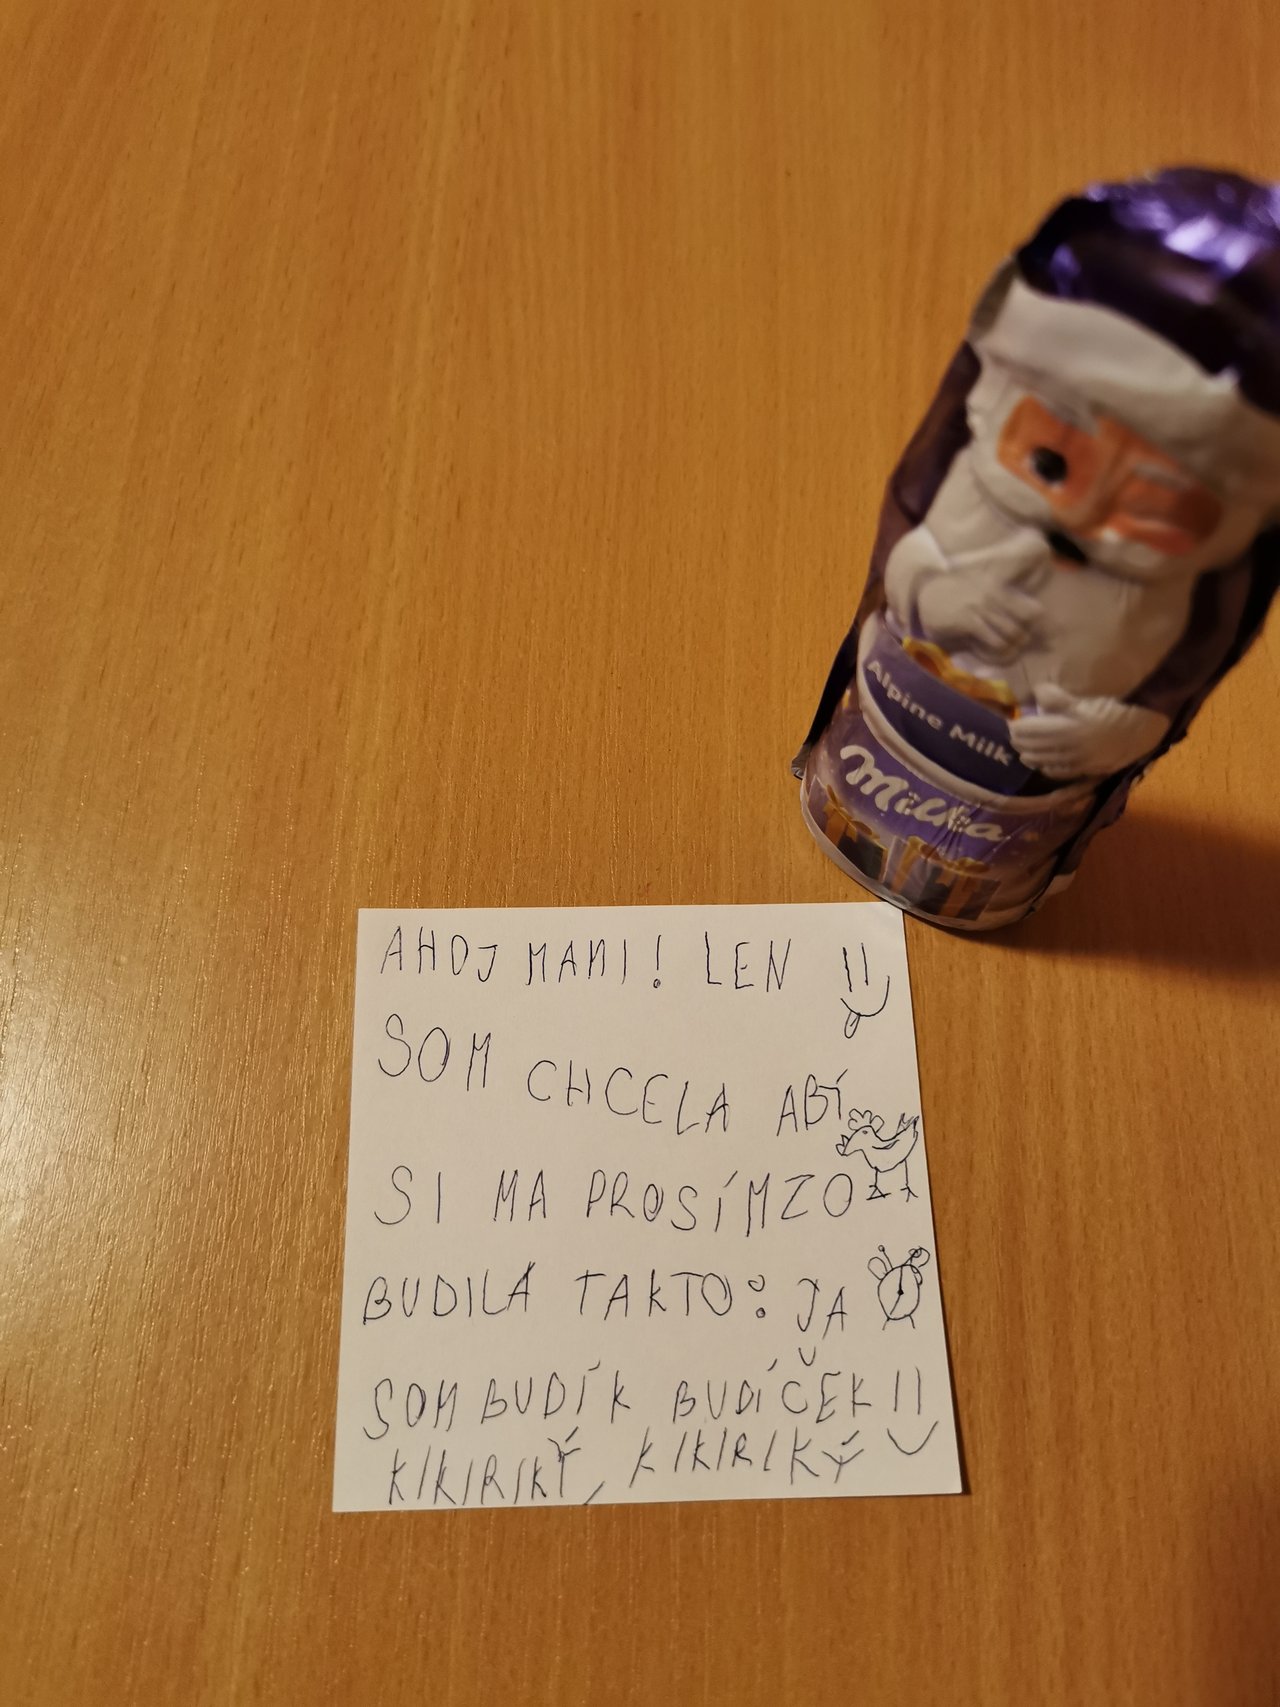 Alpine Milk
Milka
AHOJ MAMI! LEN
SOM CHCELA ABÍ
SI MA PROSÍMZO
BUDILA TAKTO: JA
SOM BUDÍK BUDÍČEK
KIKIRIKÝ, KIKIRIKÝ